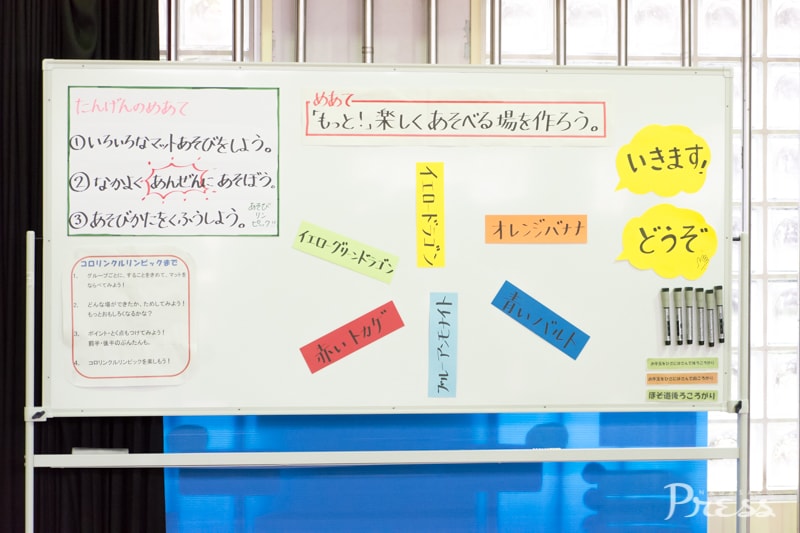 たんげんのめあて
①いろいろなマットあそびをしよう。
②なかよくあんぜんにあそぼう。
③あそびかたをくふうしよう。
あそび
リン
ピック!!
めあて
「もっと!」楽しくあそべる場を作ろう。
いきます!
どうぞ
イエロードラゴン
オレンジバナナ
イエローグリーンドラゴン
赤いトカゲ
ブルーアンモナイト
青いバルト
コロリンクルリンピックまで
1. グループごとに、することをきめて、マットを
ならべてみよう!
2. どんな場ができたか、ためしてみよう!
もっとおもしろくなるかな?
3. ポイント・とく点もつけてみよう!
前半・後半のぶんたんも。
4. コロリンクルリンピックを楽しもう!
ほそ道後ろころがり
Press